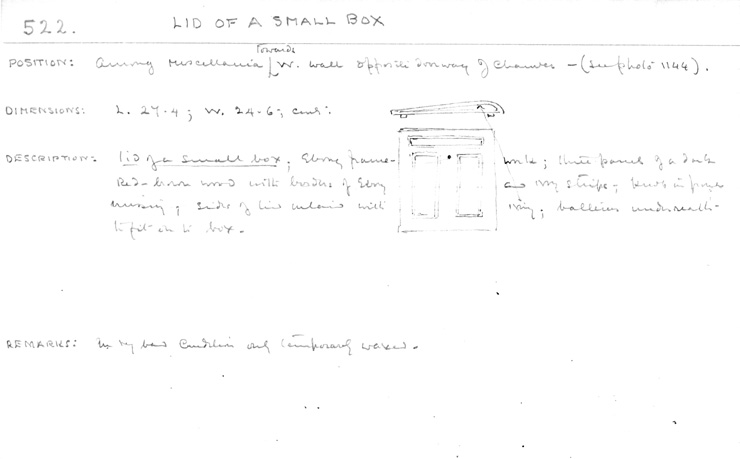 522. LID OF A SMALL BOX
POSITION: Among Miscellania towards W. wall opposite doorway of Chamber – (See photo 1144).
DIMENSIONS: L. 27·4; W. 24·6; cent:
DESCRIPTION: lid of a small box; Ebony frame-work; three panels of a dark
Red-brown wood with borders of Ebony and Ivory strips;
missing; sides of lid inlaid with ivory; battens underneath
to fit on to box.
REMARKS: In very bad Condition only temporarily waxed.